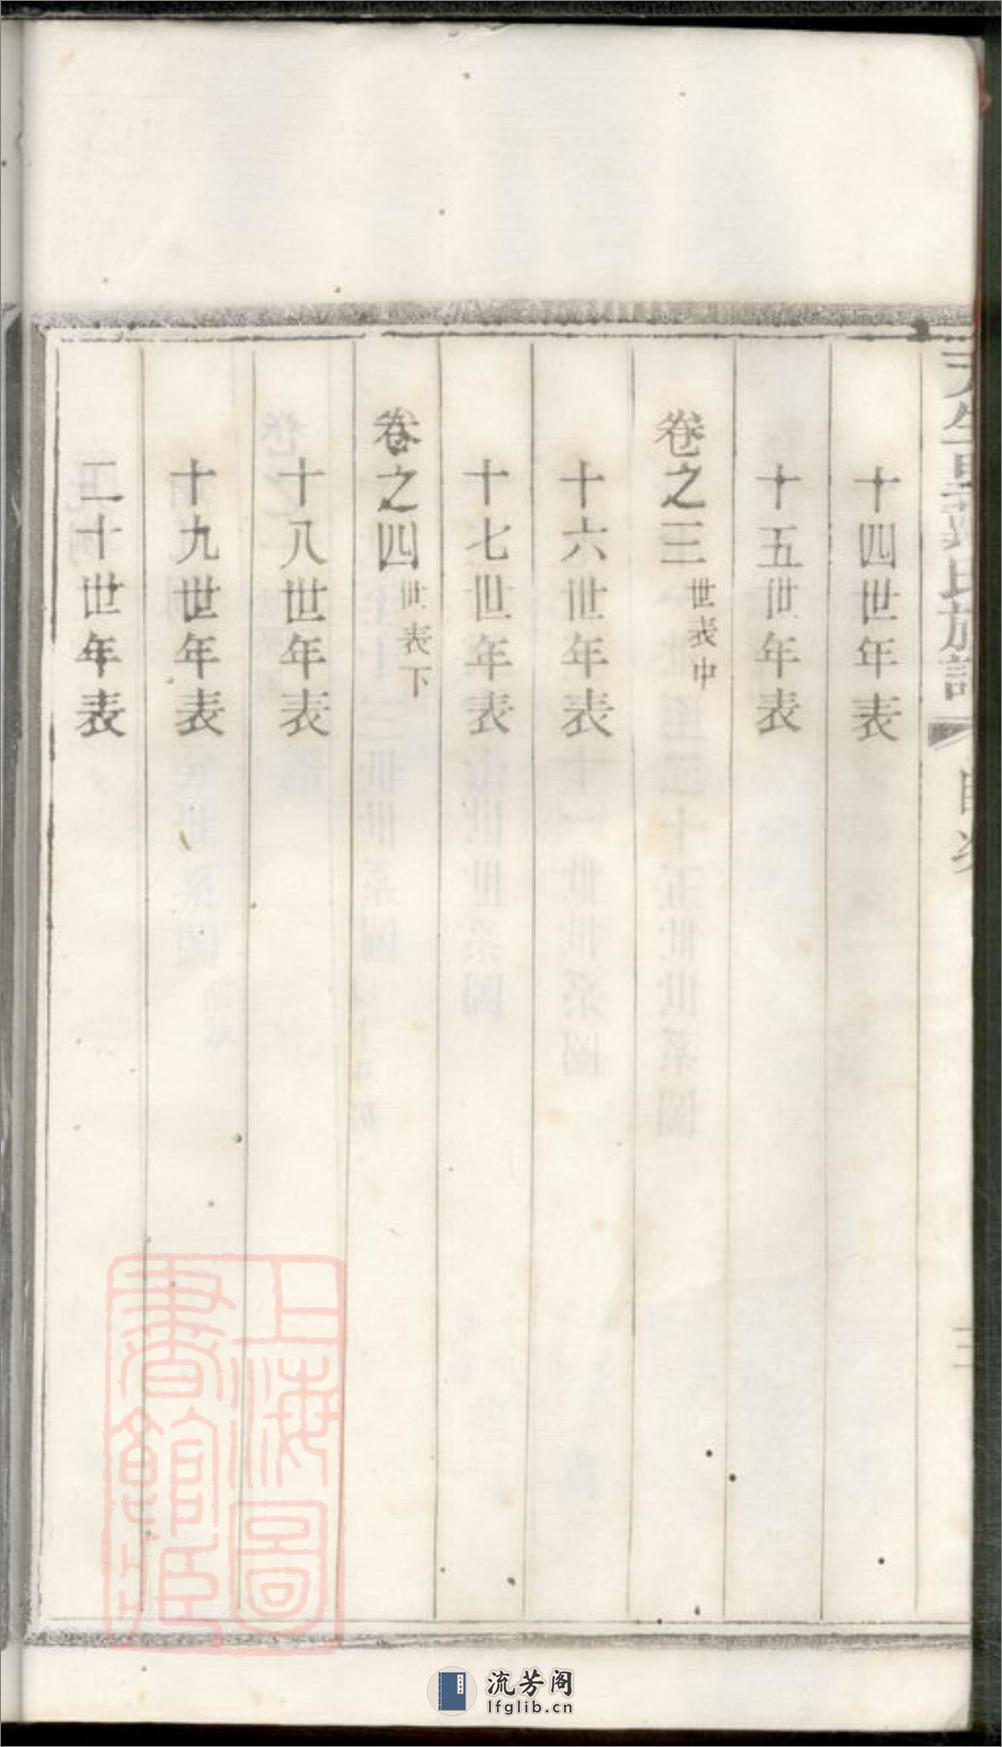 十四世年表
十五世年表
卷之三 世表中
十六世年表
十七世年表
卷之四 世表下
十八世年表
十九世年表
二十世年表
上海圖
書館藏
流芳阁
lfglib.cn